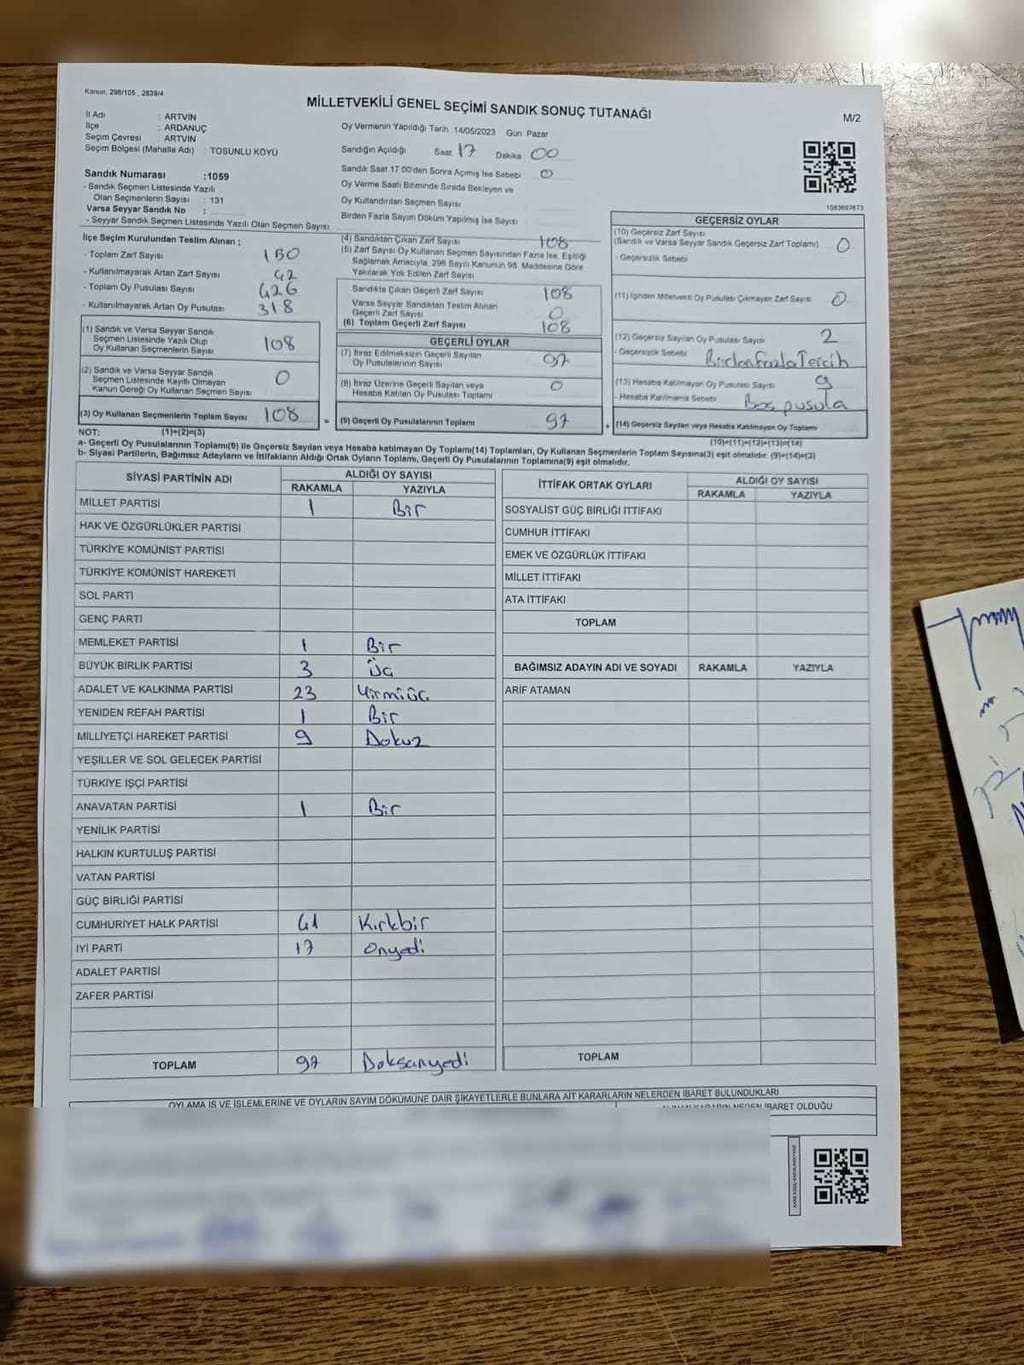 Kanun, 298/105 _ 2839/4
MİLLETVEKİLİ GENEL SEÇİMİ SANDIK SONUÇ TUTANAĞI
M/2
İl Adı : ARTVİN
İlçe : ARDANUÇ
Seçim Çevresi : ARTVİN
Seçim Bölgesi (Mahalle Adı) : TOSUNLU KÖYÜ
Oy Vermenin Yapıldığı Tarih 14/05/2023 Gün Pazar
Sandığın Açıldığı Saat 17 Dakika 00
Sandık Saat 17:00'den Sonra Açmış İse Sebebi 0
Oy Verme Saati Bitiminde Sırada Bekleyen ve
Oy Kullandırılan Seçmen Sayısı
Birden Fazla Sayım Döküm Yapılmış İse Sayısı
Sandık Numarası :1059
- Sandık Seçmen Listesinde Yazılı
Olan Seçmenlerin Sayısı : 131
Varsa Seyyar Sandık No :
- Seyyar Sandık Seçmen Listesinde Yazılı Olan Seçmen Sayısı
1083697673
İlçe Seçim Kurulundan Teslim Alınan ;
- Toplam Zarf Sayısı 150
- Kullanılmayarak Artan Zarf Sayısı 42
- Toplam Oy Pusulası Sayısı 426
- Kullanılmayarak Artan Oy Pusulası 318
(1) Sandık ve Varsa Seyyar Sandık
Seçmen Listesinde Yazılı Olup
Oy Kullanan Seçmenlerin Sayısı 108
(2) Sandık ve Varsa Seyyar Sandık
Seçmen Listesinde Kayıtlı Olmayan
Kanun Gereği Oy Kullanan Seçmen Sayısı 0
(3) Oy Kullanan Seçmenlerin Toplam Sayısı 108
(4) Sandıktan Çıkan Zarf Sayısı 108
(5) Zarf Sayısı Oy Kullanan Seçmen Sayısından Fazla İse, Eşitliği
Sağlamak Amacıyla, 298 Sayılı Kanunun 98. Maddesine Göre
Yakılarak Yok Edilen Zarf Sayısı
Sandıkta Çıkan Geçerli Zarf Sayısı 108
Varsa Seyyar Sandıktan Teslim Alınan
Geçerli Zarf Sayısı 0
(6) Toplam Geçerli Zarf Sayısı 108
GEÇERLİ OYLAR
(7) İtiraz Edilmeksizin Geçerli Sayılan
Oy Pusulalarının Sayısı 97
(8) İtiraz Üzerine Geçerli Sayılan veya
Hesaba Katılan Oy Pusulası Toplamı 0
= (9) Geçerli Oy Pusulalarının Toplamı 97
GEÇERSİZ OYLAR
(10) Geçersiz Zarf Sayısı
(Sandık ve Varsa Seyyar Sandık Geçersiz Zarf Toplamı) 0
- Geçersizlik Sebebi
(11) İçinden Milletvekili Oy Pusulası Çıkmayan Zarf Sayısı 0
(12) Geçersiz Sayılan Oy Pusulası Sayısı 2
- Geçersizlik Sebebi Birden Fazla Tercih
(13) Hesaba Katılmayan Oy Pusulası Sayısı 9
- Hesaba Katılmama Sebebi Boş pusula
+ (14) Geçersiz Sayılan veya Hesaba Katılmayan Oy Toplamı
NOT: (1)+(2)=(3)
(10)+(11)+(12)+(13)=(14)
a- Geçerli Oy Pusulalarının Toplamı(9) ile Geçersiz Sayılan veya Hesaba katılmayan Oy Toplamı(14) Toplamları, Oy Kullanan Seçmenlerin Toplam Sayısına(3) eşit olmalıdır. (9)+(14)=(3)
b- Siyasi Partilerin, Bağımsız Adayların ve İttifakların Aldığı Ortak Oyların Toplamı, Geçerli Oy Pusulalarının Toplamına(9) eşit olmalıdır.
SİYASİ PARTİNİN ADI ALDIĞI OY SAYISI
RAKAMLA YAZIYLA
MİLLET PARTİSİ 1 Bir
HAK VE ÖZGÜRLÜKLER PARTİSİ
TÜRKİYE KOMÜNİST PARTİSİ
TÜRKİYE KOMÜNİST HAREKETİ
SOL PARTİ
GENÇ PARTİ
MEMLEKET PARTİSİ 1 Bir
BÜYÜK BİRLİK PARTİSİ 3 Üç
ADALET VE KALKINMA PARTİSİ 23 Yirmiüç
YENİDEN REFAH PARTİSİ 1 Bir
MİLLİYETÇİ HAREKET PARTİSİ 9 Dokuz
YEŞİLLER VE SOL GELECEK PARTİSİ
TÜRKİYE İŞÇİ PARTİSİ
ANAVATAN PARTİSİ 1 Bir
YENİLİK PARTİSİ
HALKIN KURTULUŞ PARTİSİ
VATAN PARTİSİ
GÜÇ BİRLİĞİ PARTİSİ
CUMHURİYET HALK PARTİSİ 41 Kırkbir
İYİ PARTİ 17 Onyedi
ADALET PARTİSİ
ZAFER PARTİSİ
TOPLAM 97 Doksanyedi
İTTİFAK ORTAK OYLARI ALDIĞI OY SAYISI
RAKAMLA YAZIYLA
SOSYALİST GÜÇ BİRLİĞİ İTTİFAKI
CUMHUR İTTİFAKI
EMEK VE ÖZGÜRLÜK İTTİFAKI
MİLLET İTTİFAKI
ATA İTTİFAKI
TOPLAM
BAĞIMSIZ ADAYIN ADI VE SOYADI RAKAMLA YAZIYLA
ARİF ATAMAN
TOPLAM
OYLAMA İŞ VE İŞLEMLERİNE VE OYLARIN SAYIM DÖKÜMÜNE DAİR ŞİKAYETLERLE BUNLARA AİT KARARLARIN NELERDEN İBARET BULUNDUKLARI
NEDEN İBARET OLDUĞU